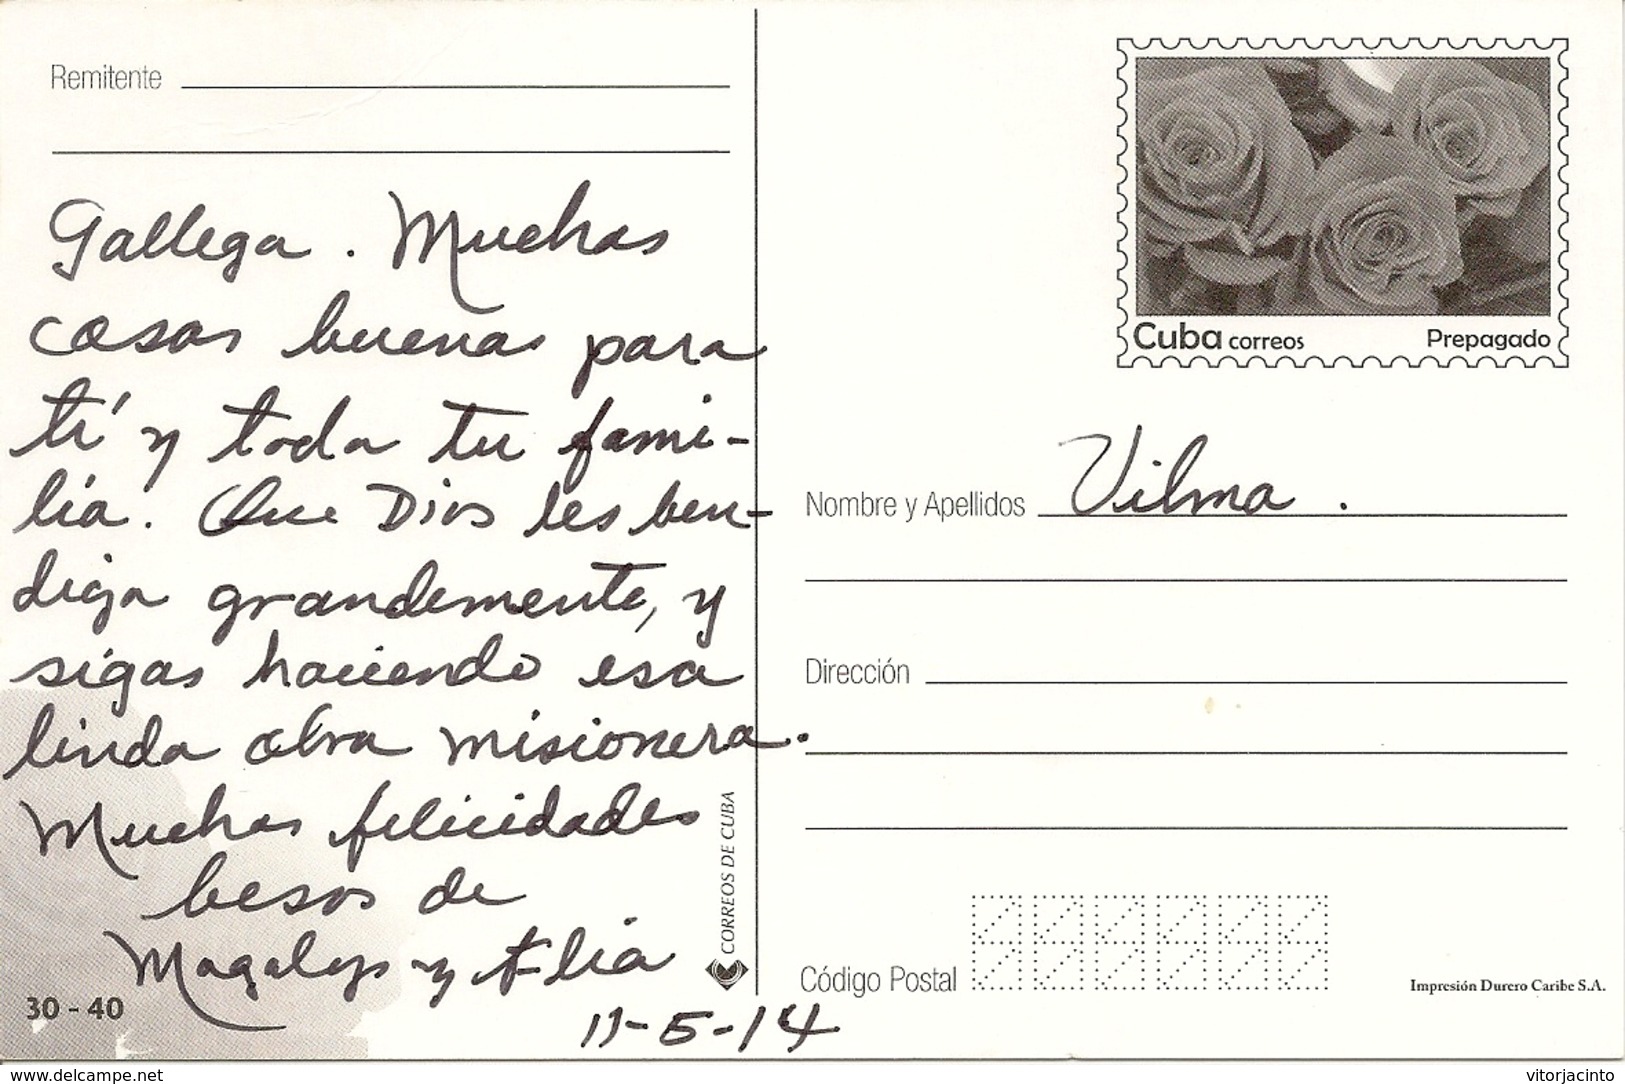 Remitente
Gallega. Muchas
cosas buenas para
tí y toda tu fami-
lia. Que Dios les ben-
diga grandemente, y
sigas haciendo esa
linda obra misionera.
Muchas felicidades
besos de
Magalys y Alia
11-5-14
30 - 40
CORREOS DE CUBA
Cuba correos Prepagado
Nombre y Apellidos Vilma.
Dirección
Código Postal
Impresión Durero Caribe S.A.
www.delcampe.net
vitorjacinto